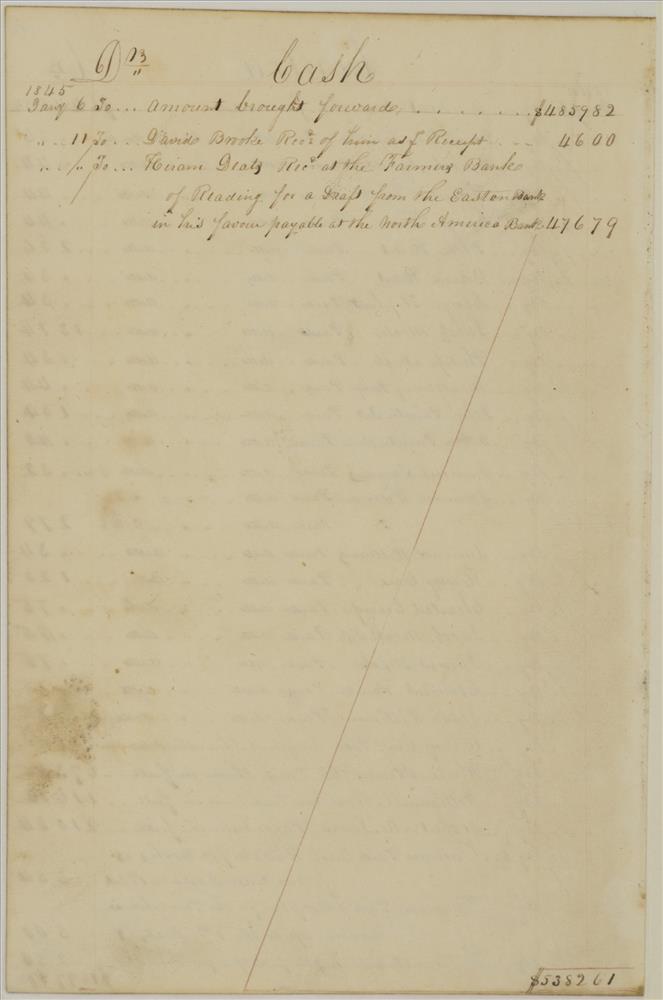 Drs Cash
1845
Jany 6 To ... Amount brought forward, . . . . . . . $4859 82
" .. 11 To ... David Brooke Recd of him as pr Receipt . . . 46 00
" .. " To ... Hiram Deats Recd at the Farmers Bank
of Reading for a Draft from the Easton Bank
in his favour payable at the North America Bank 476 79
$5382 61